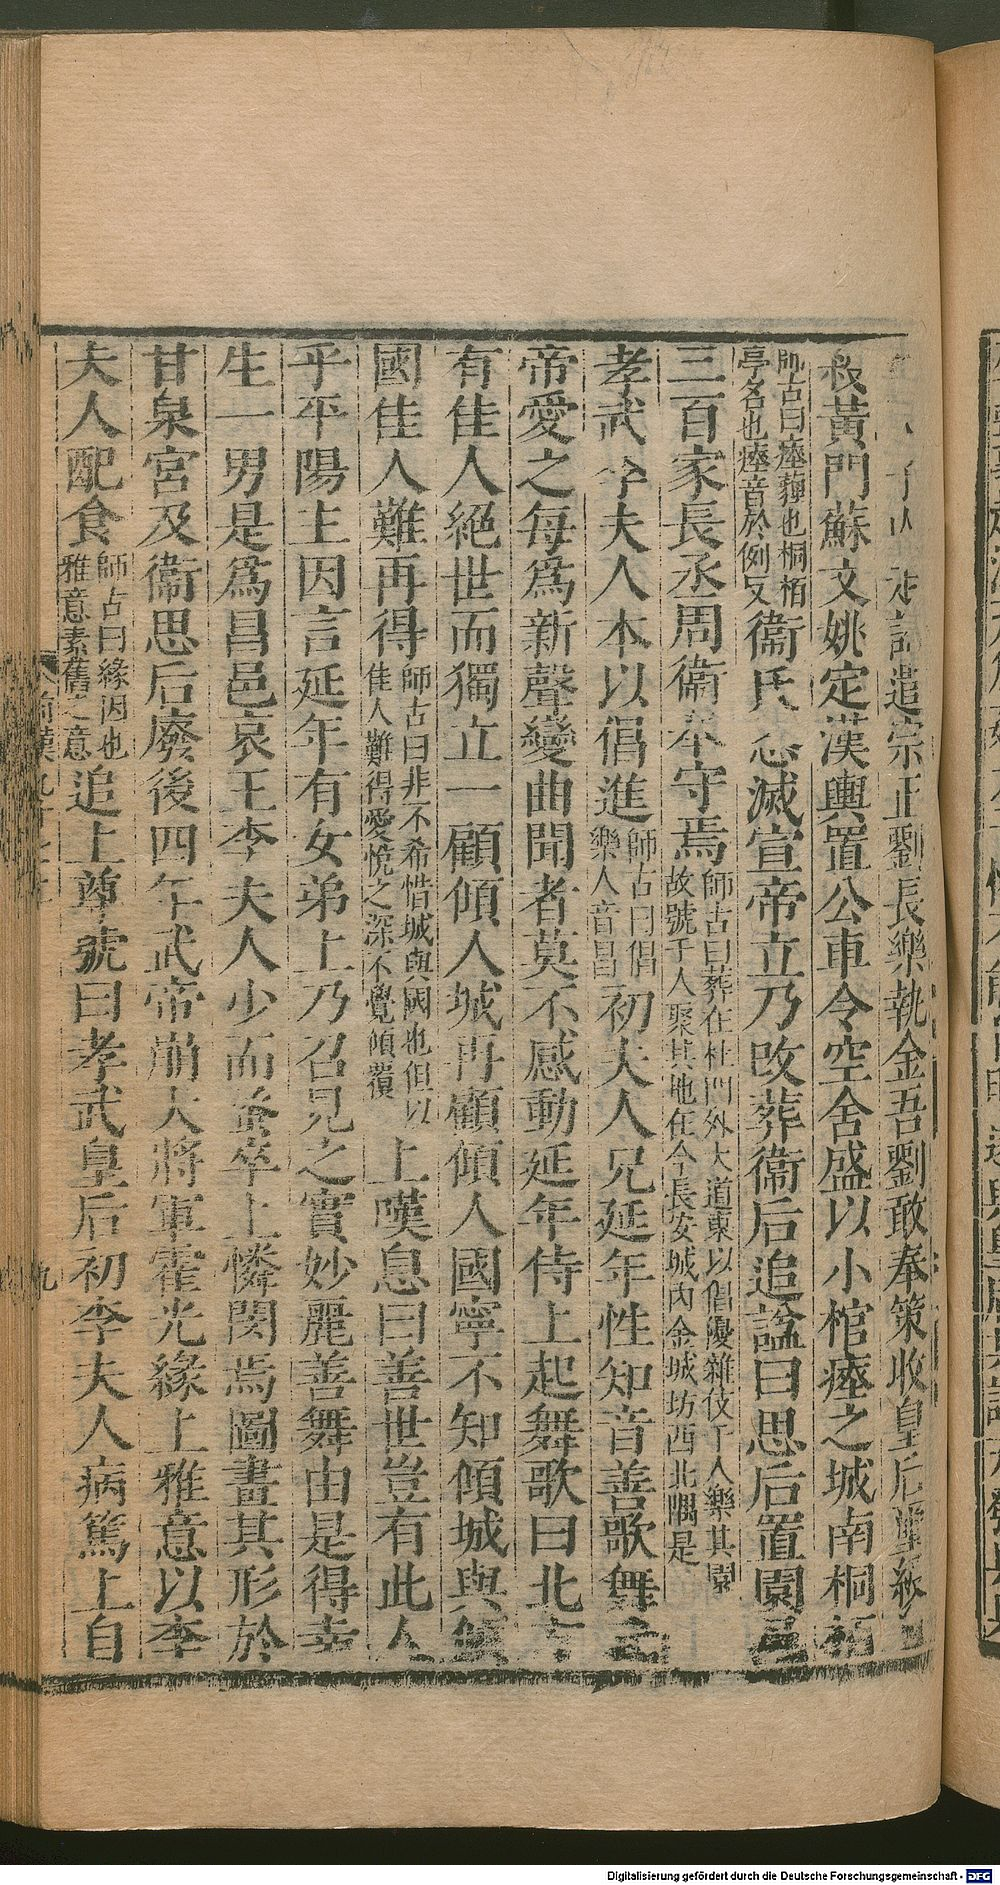 走詔遣宗正劉長樂執金吾劉敢奉策收皇后璽綬
殺黃門蘇文姚定漢輿置公車令空舍盛以小棺瘞之城南桐栢
師古曰瘞薶也桐栢
亭名也瘞音於例反
衞氏悉滅宣帝立乃改葬衞后追諡曰思后置園邑
三百家長丞周衞奉守焉
師古曰葬在杜門外大道東以倡優雜伎千人樂其園
故號千人聚其地在今長安城內金城坊西北隅是
孝武李夫人本以倡進
師古曰倡
樂人音昌
初夫人兄延年性知音善歌舞
帝愛之每爲新聲變曲聞者莫不感動延年侍上起舞歌曰北方
有佳人絕世而獨立一顧傾人城再顧傾人國寧不知傾城與傾
國佳人難再得
師古曰非不希惜城與國也但以
佳人難得愛悅之深不覺傾覆
上嘆息曰善世豈有此人
乎平陽主因言延年有女弟上乃召見之實妙麗善舞由是得幸
生一男是爲昌邑哀王李夫人少而蚤卒上憐閔焉圖畫其形於
甘泉宮及衞思后廢後四年武帝崩大將軍霍光緣上雅意以李
夫人配食
師古曰緣因也
雅意素舊之意
追上尊號曰孝武皇后初李夫人病篤上自
九
Digitalisierung gefördert durch die Deutsche Forschungsgemeinschaft - DFG